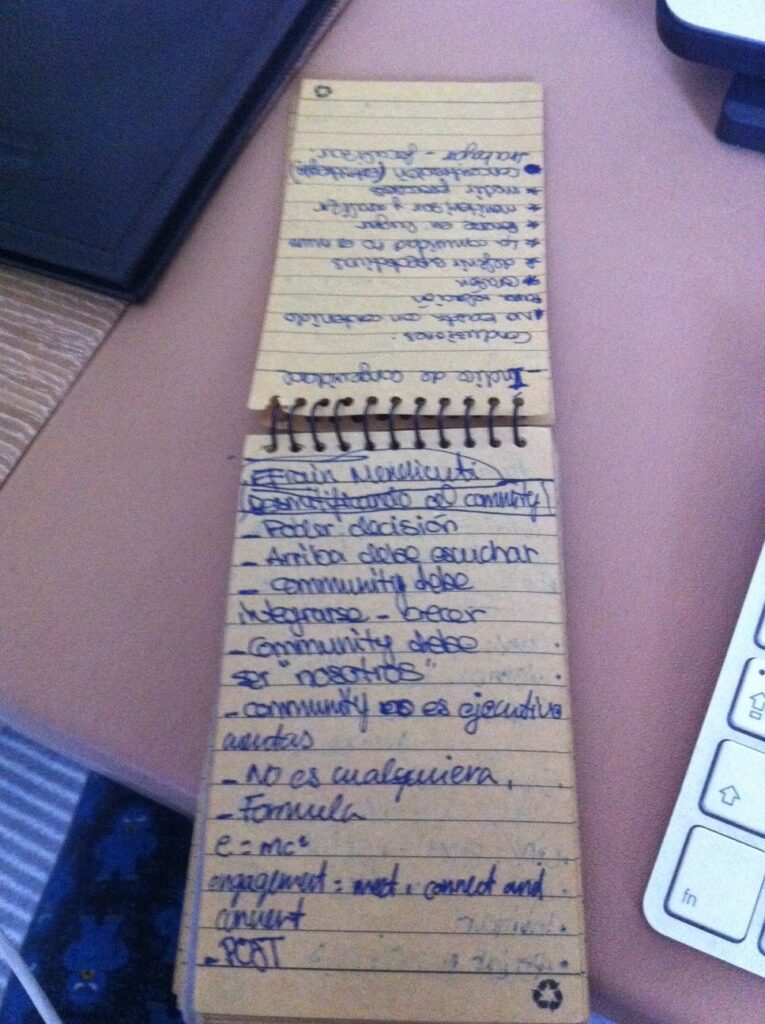 - Índice de
Conclusiones:
* No basta con contenido
relación
*
* definir
* La comunidad no es
en lugar
* monitorizar y analizar
* medir procesos
concentración (estrategia)
focalizar.
Efrain
Desmitificando el community
- Poder decisión
- Arriba debe escuchar
- community debe
integrarse -
- Community debe
ser "nosotros"
- community no es ejecutivo
cuentas
- No es cualquiera.
- Formula
e = mc²
engagement = meet, connect and
convert
- POST
fn